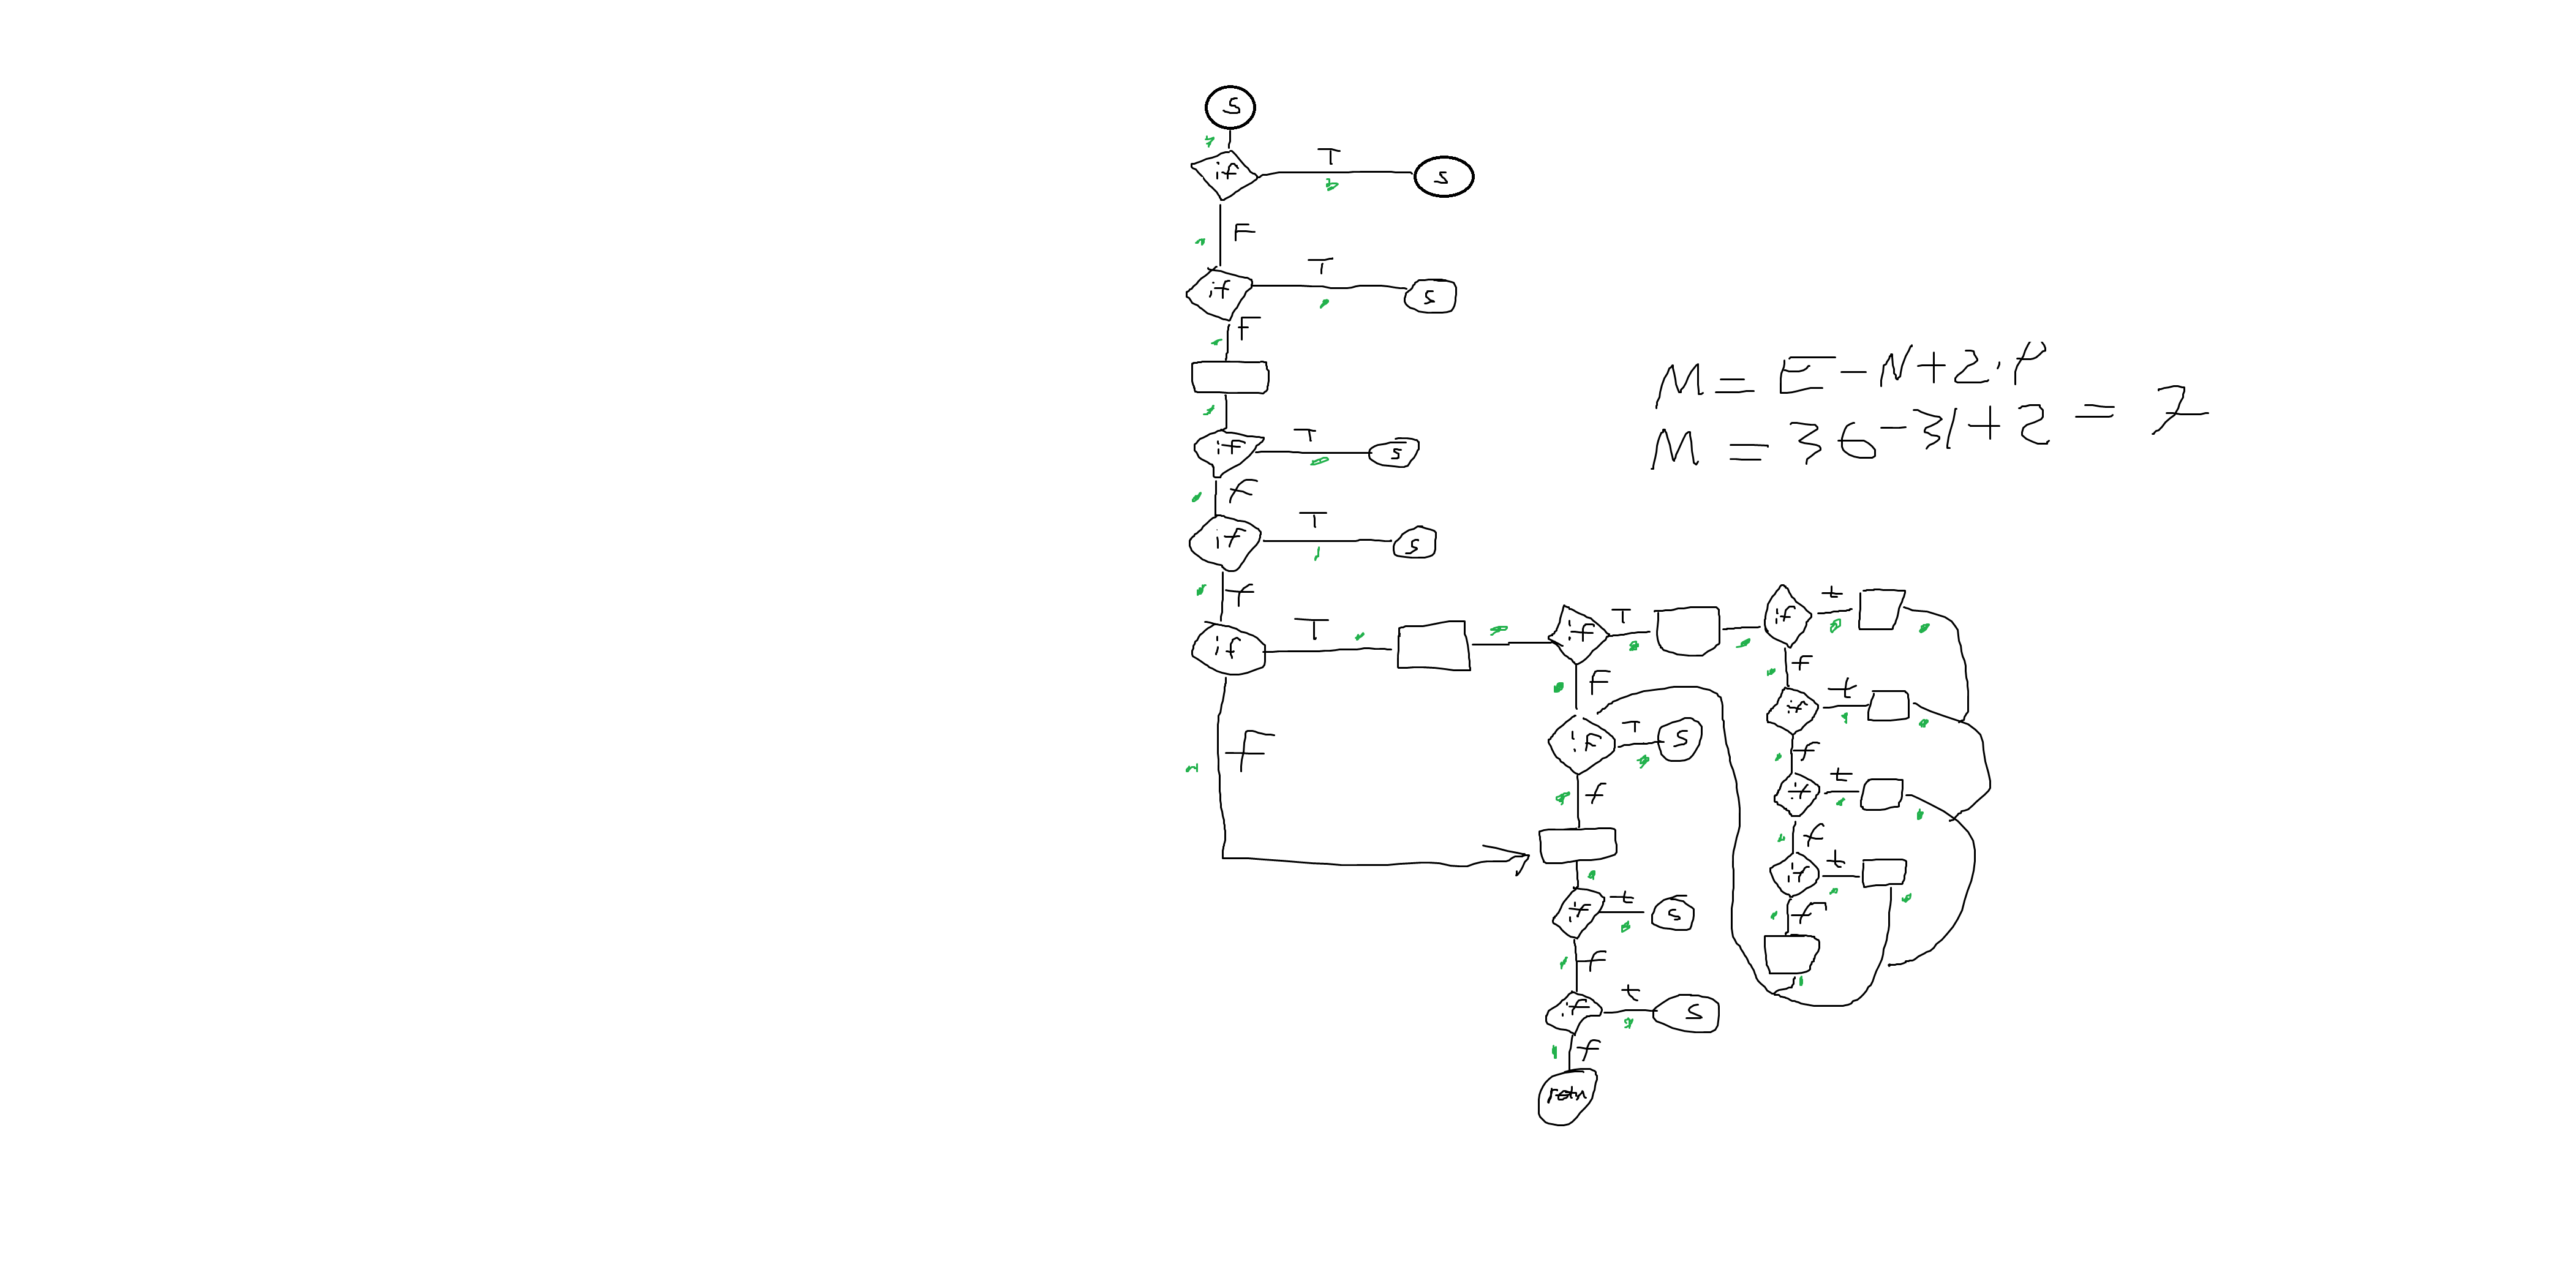 S
if T S
F
if T S
F
if T S
f
if T S
f
if T if T if t
F f
if t
F
if T S f
f if t
f
if t
if t S f
f
if t S
f
retn
M = E - N + 2 · P
M = 36 - 31 + 2 = 7